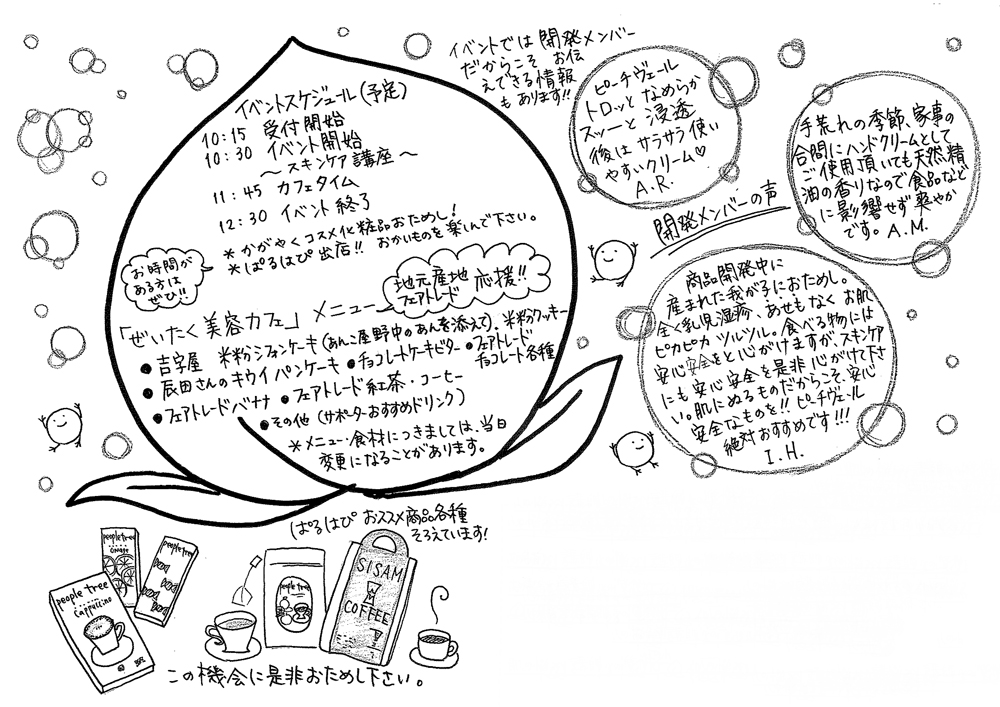 イベントスケジュール(予定)
10:15 受付開始
10:30 イベント開始
～スキンケア講座～
11:45 カフェタイム
12:30 イベント終了
*かがやくコスメ化粧品おためし!
*ぱるはぴ出店!! おかいものを楽しんで下さい。
お時間が
ある方は
ぜひ!!
「ぜいたく美容カフェ」メニュー
地元産地
フェアトレード
応援!!
●吉字屋 米粉シフォンケーキ(あんこ屋野中のあんを添えて)、米粉クッキー
●辰田さんのキウイパンケーキ ●チョコレートケーキビター ●フェアトレード
チョコレート各種
●フェアトレードバナナ ●フェアトレード紅茶・コーヒー
●その他(サポーターおすすめドリンク)
*メニュー・食材につきましては、当日
変更になることがあります。
イベントでは開発メンバー
だからこそお伝
えできる情報
もあります!!
ピーチヴェール
トロッとなめらか
スッーと浸透
後はサラサラ使い
やすいクリーム♡
A.R.
手荒れの季節、家事の
合間にハンドクリームとして
ご使用頂いても天然精
油の香りなので食品など
に影響せず爽やか
です。A.M.
開発メンバーの声
商品開発中に
産まれた我が子におためし。
全く乳児湿疹、あせもなくお肌
ピカピカツルツル。食べる物には
安心安全をと心がけますが、スキンケア
にも安心安全を是非心がけて下さ
い。肌にぬるものだからこそ、安心
安全なものを!!ピーチヴェール
絶対おすすめです!!!
I.H.
ぱるはぴおススメ商品各種
そろえています!
people tree
orange
people tree
people tree
cappuccino
people tree
SISAM
COFFEE
この機会に是非おためし下さい。